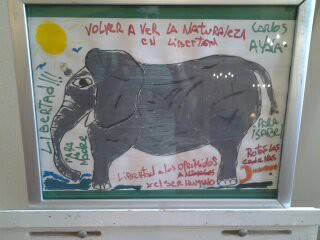 VOLVER A VER LA NATURALEZA
EN LIBERTAD
CARLOS
AYALA
¡LIBERTAD!!!
PARA
ISABEL
ROTAS LAS
cadenas
LIBERTAD a los OPRIMIDOS
ANIMALES
x el SER HUMANO